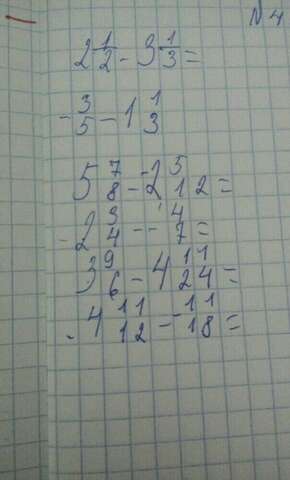 N 4
2 1/2 - 3 1/3 =
- 3/5 - 1 1/3
5 7/8 - 2 5/12 =
- 2 3/4 - - 4/7 =
3 9/6 - 4 11/24 =
- 4 11/12 - 11/18 =